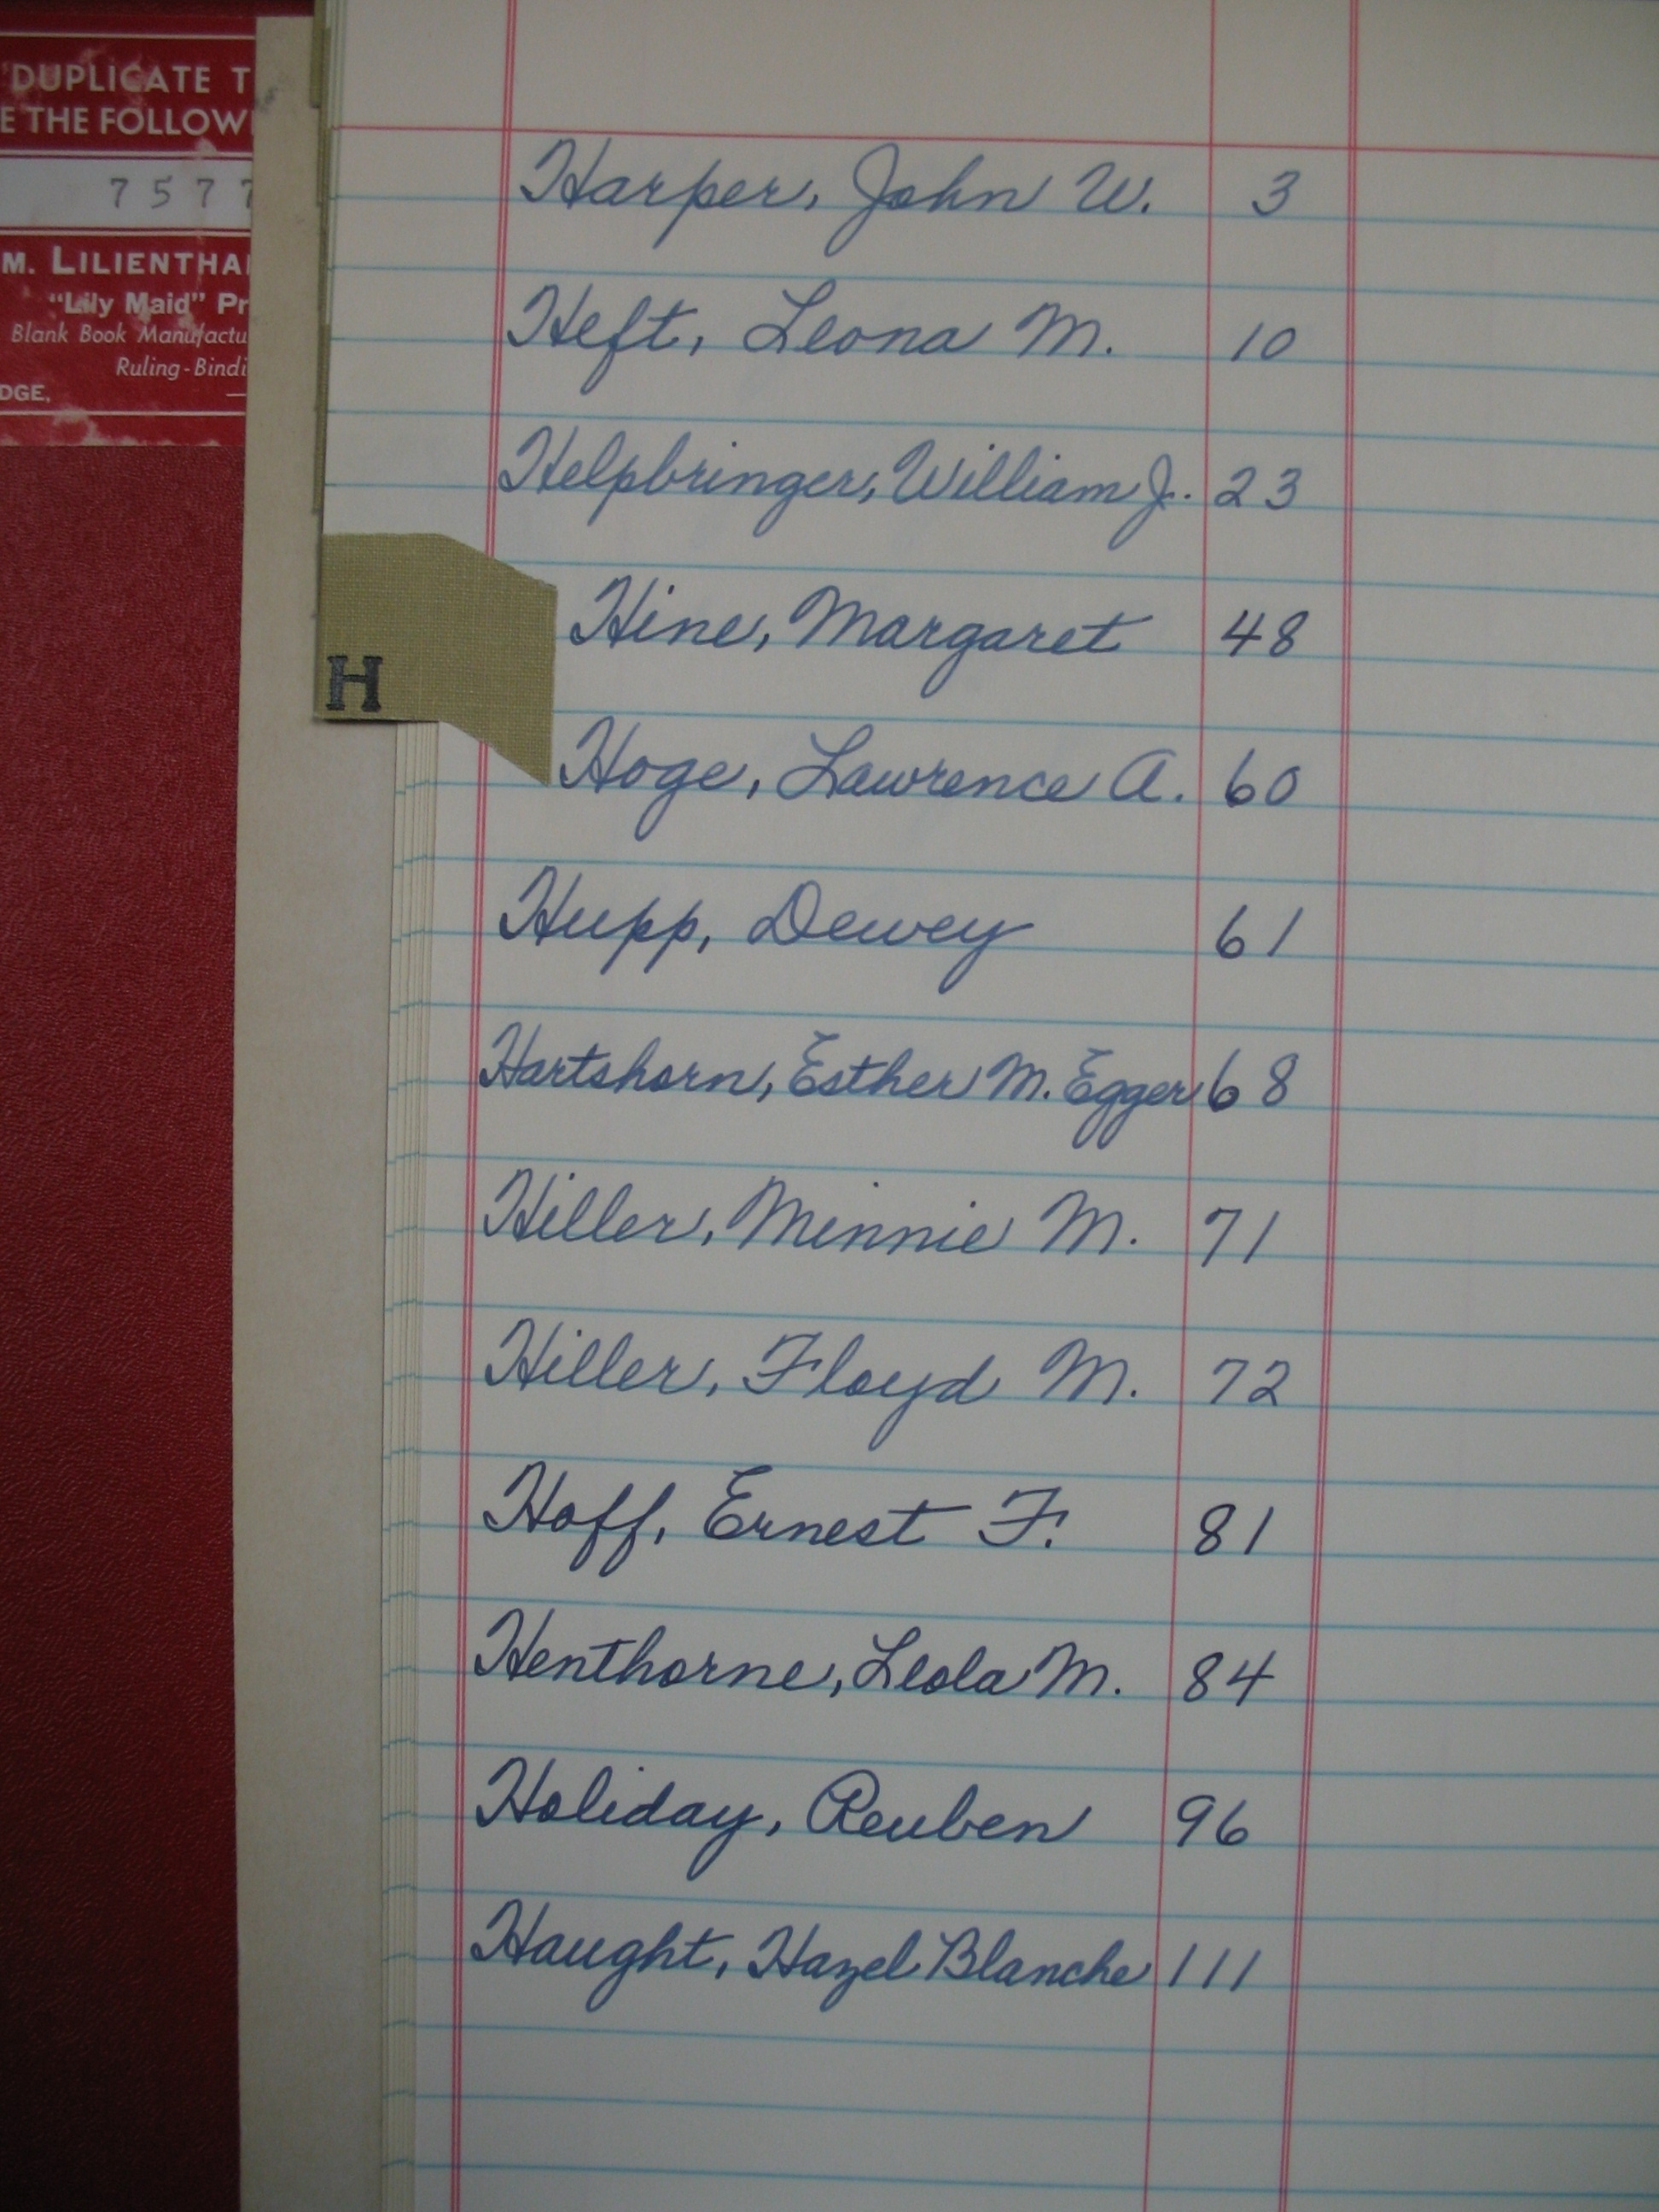 DUPLICATE T
E THE FOLLOWI
7577
M. LILIENTHAL
"Lily Maid" Pr
Blank Book Manufactu
Ruling-Bindi
DGE,
Harper, John W. 3
Heft, Leona M. 10
Helpbringer, William J. 23
H
Hine, Margaret 48
Hoge, Lawrence A. 60
Hupp, Dewey 61
Hartshorn, Esther M. Egger 68
Hiller, Minnie M. 71
Hiller, Floyd M. 72
Hoff, Ernest F. 81
Henthorne, Leola M. 84
Holiday, Reuben 96
Haught, Hazel Blanche 111